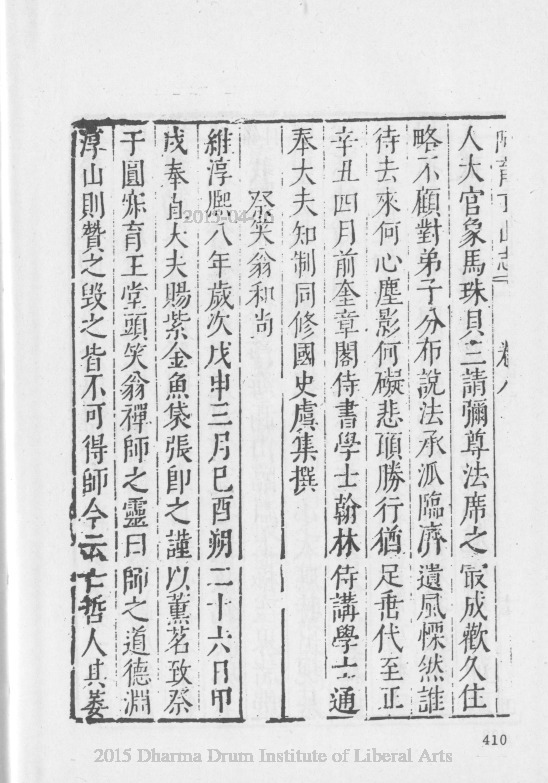 阿育王山志 卷八
人大官象馬珠貝三請彌尊法席之㝡成歡久住
略不顧對弟子分布說法承派臨濟遺風慄然誰
待去來何心塵影何礙悲頂勝行猶足垂代至正
辛丑四月前奎章閣侍書學士翰林侍講學士通
奉大夫知制同修國史虞集撰
祭笑翁和尚
維淳熙八年歲次戊申三月己酉朔二十六日甲
戌奉直大夫賜紫金魚袋張即之謹以薰茗致祭
于圓寂育王堂頭笑翁禪師之靈曰師之道德淵
淳山則贊之毀之皆不可得師今云亡哲人其萎
2015-04-
410
2015 Dharma Drum Institute of Liberal Arts